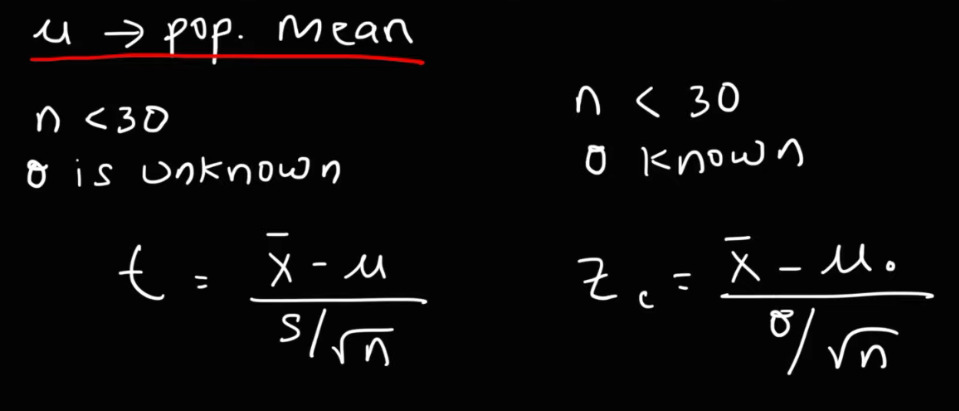 μ → pop. mean
n < 30
σ is unknown
t = x̄ - μ / s/√n
n < 30
σ known
z_c = x̄ - μ₀ / σ/√n